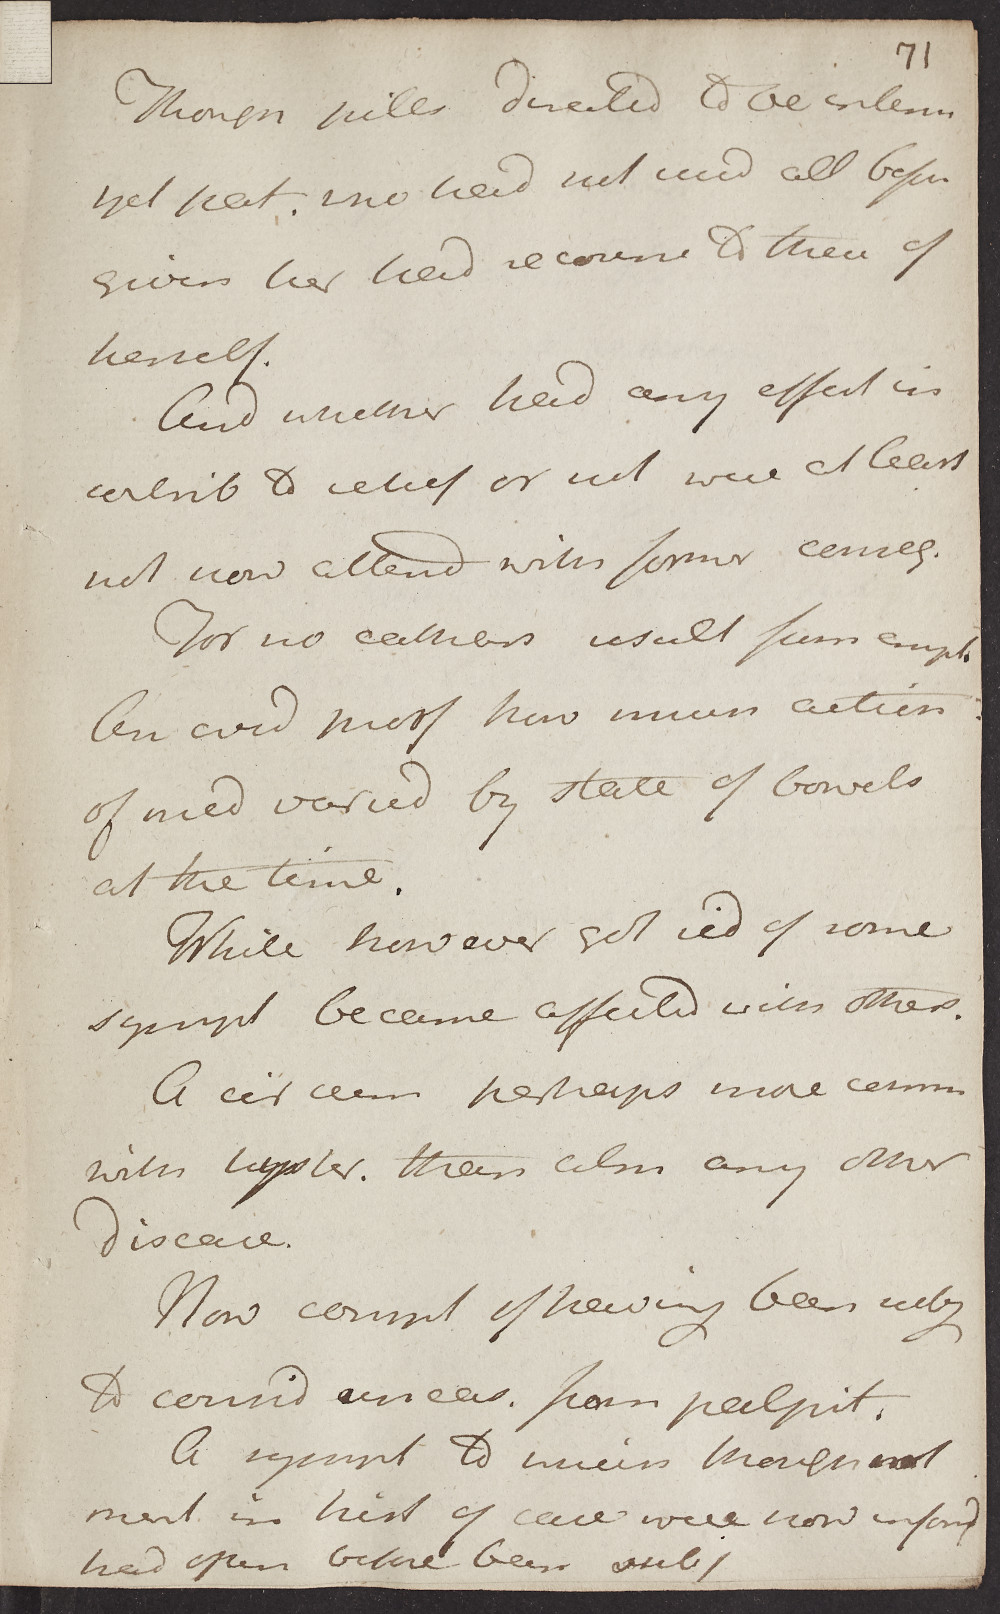 71
Though pills directed to be interm
yet pat. who had not used all befor
given her had recourse to them of
herself.
And whether had any effect in
contrib to relief or not were at least
not now attend with former conseq.
For no cathars result from empl.
An avid proof how much action
of med varied by state of bowels
at the time.
While however got rid of some
sympt became affected with others.
A circum perhaps more comm
with hyster. than alm any other
disease.
Now compl of having been subj
to consid uneas. from palpit.
A sympt to which though not
ment in hist of case were now inford
had often before been subj